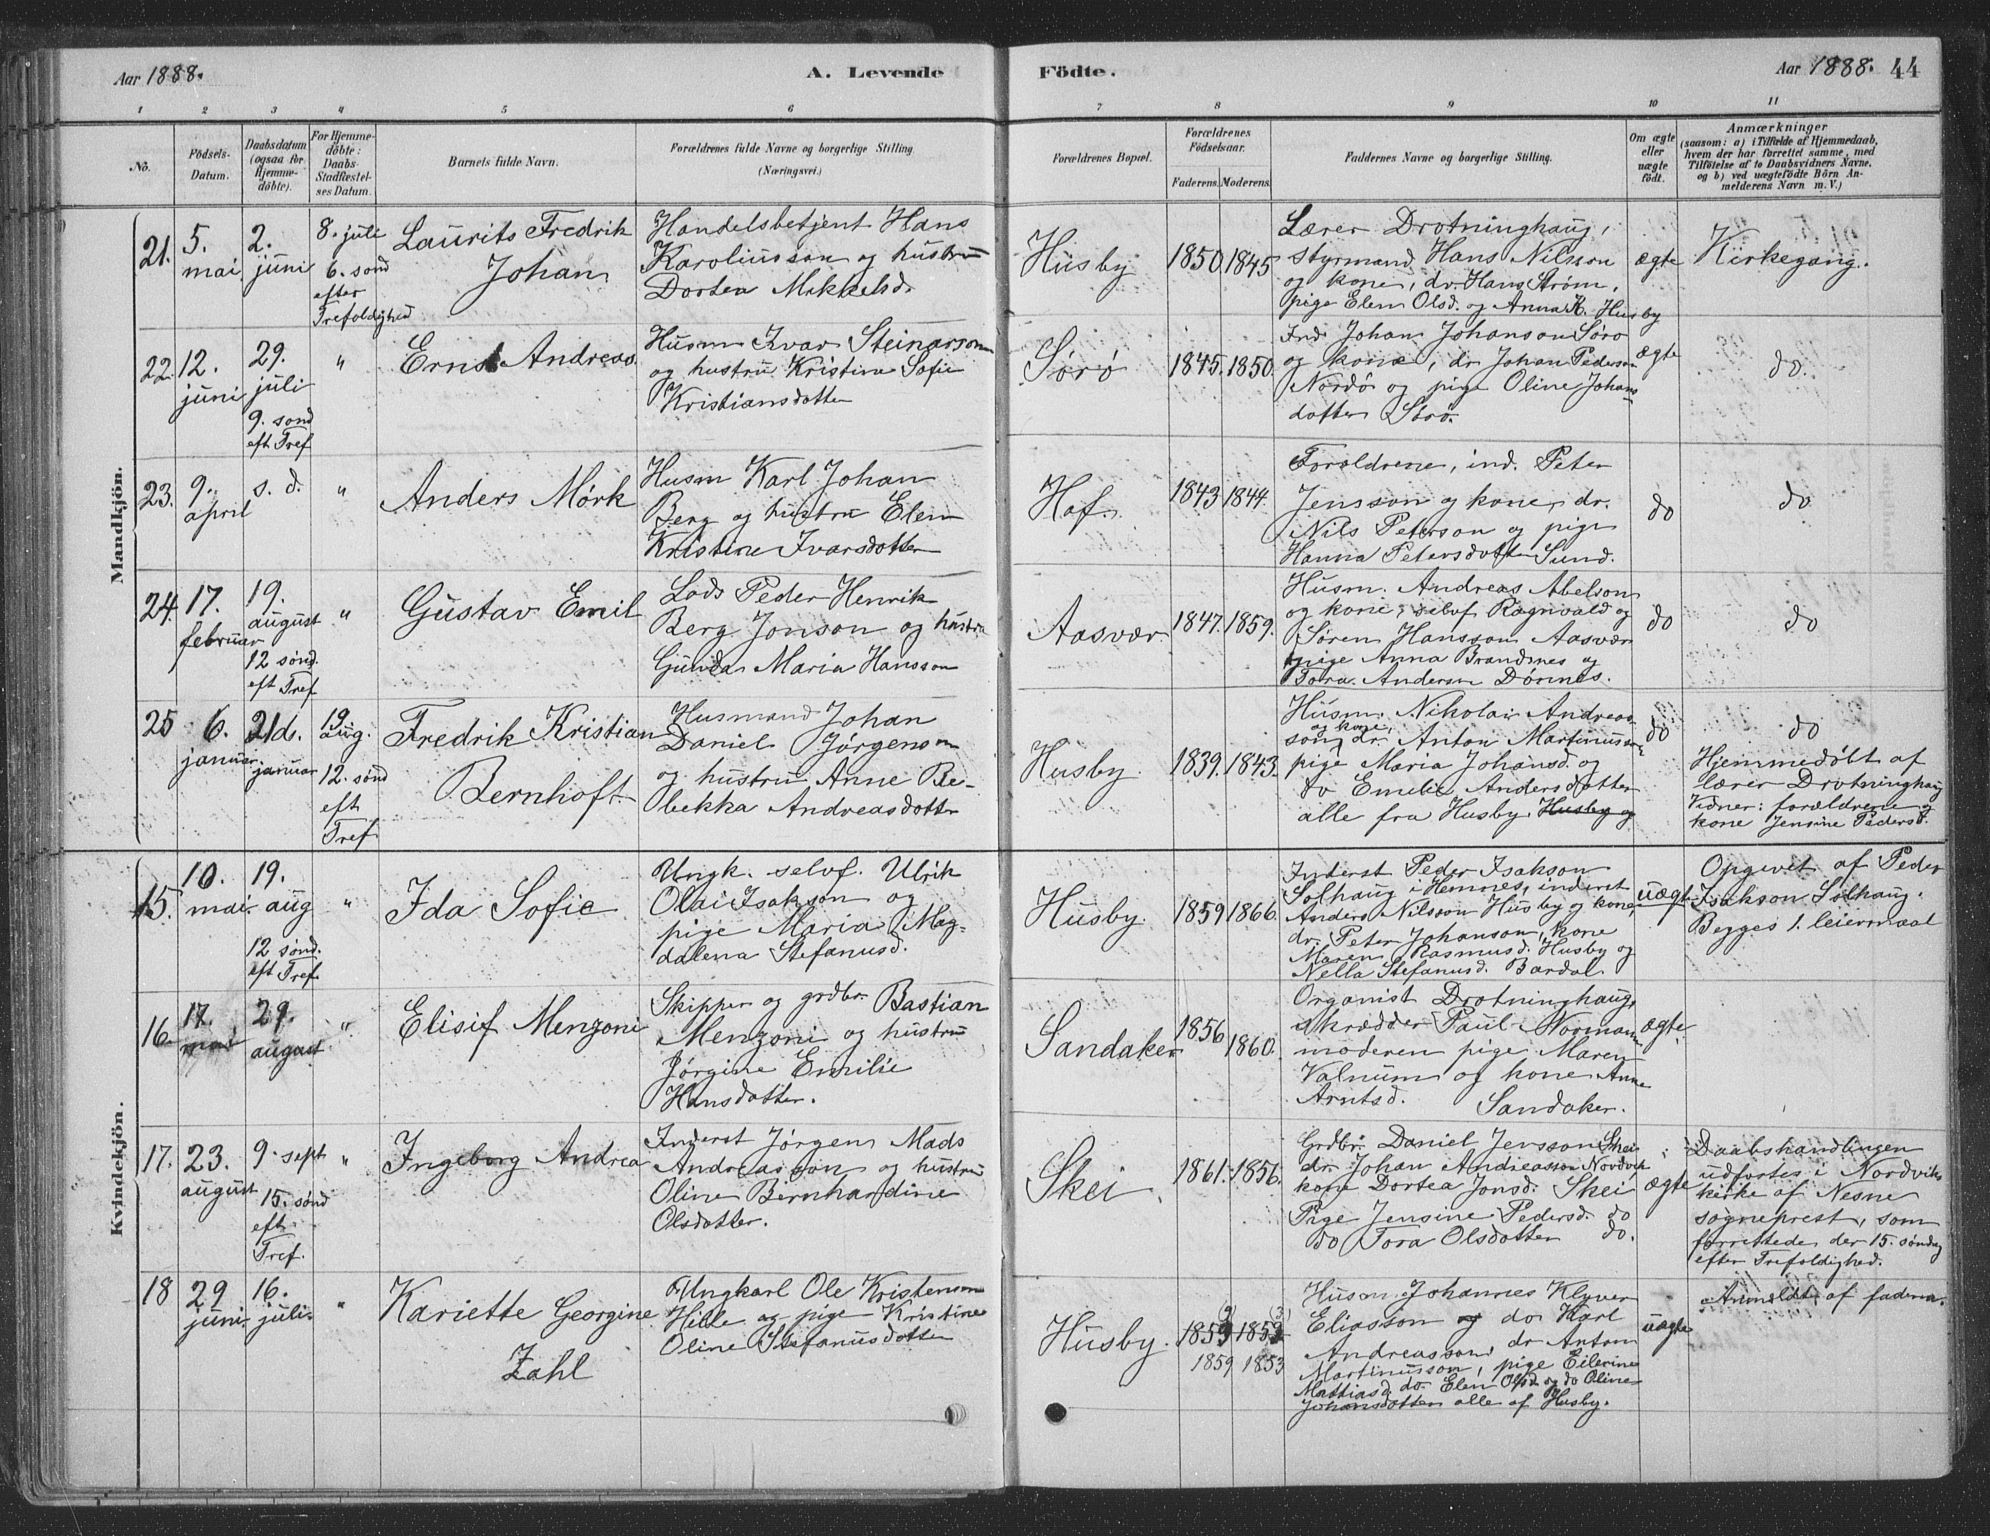 Aar 1888. A. Levende Födte. Aar 1888. 44
1 2 3 4 5 6 7 8 9 10 11
No.
Födsels-
Datum.
Daabsdatum
(ogsaa for
Hjemme-
döbte).
For Hjemme-
döbte:
Daabs-
Stadfæstel-
ses Datum.
Barnets fulde Navn.
Forældrenes fulde Navne og borgerlige Stilling.
(Næringsvei.)
Forældrenes Bopæl.
Forældrenes
Födselsaar.
Faderens. Moderens.
Faddernes Navne og borgerlige Stilling.
Om ægte
eller
uægte
födt.
Anmærkninger
(saasom: a) i Tilfælde af Hjemmedaab,
hvem der har forrettet samme, med
Tilföielse af to Daabsvidners Navne,
og b) ved uægtefödte Börn An-
melderens Navn m. V.)
Mandkjön.
21.
5.
mai
2.
juni
8. juli
6. sønd
efter
Trefoldighed
Laurits Fredrik
Johan
Handelsbetjent Hans
Karoliusson og hustru
Dortea Mikkelsd.
Husby
1850. 1845
Lærer Drotninghaug,
styrmand Hans Nilsson
og kone, dr. Hans Strøm,
pige Elen Olsd. og Anna K. Husby
ægte
Kirkegang.
22.
12.
juni
29.
juli
9. sønd
eft Tref
"
Ernst Andreas.
Husm Ivar Steinarson
og hustru Kristine Sofie
Kristiansdotter
Sørø
1845. 1850.
Ind. Johan Johanson Sørø
og kone, dr Johan Pederson
Nordø og pige Oline Johans
dotter Sørø.
ægte
do.
23.
9.
april
s. d.
"
Anders Mørk
Husm Karl Johan
Berg og hustru Elen
Kristine Ivarsdotter
Hof.
1843 1844.
Forældrene, ind. Peter
Jensson og kone, dr.
Nils Peterson og pige
Hanna Petersdotter Sund.
do
do
24.
17.
februar
19.
august
12 sønd.
eft Tref
"
Gustav Emil
Lods Peder Henrik
Berg Jonson og hustru
Gunda Maria Hansson
Aasvær
1847. 1859.
Husm. Andreas Abelson
og kone, selvf Ragnvald og
Søren Hansson Aasvær
pige Anna Brandsnes og
Tora Andersen Dønnes.
do
do
25
6.
januar.
21 ds.
januar
19
aug.
12. sønd
eft
Tref
Fredrik Kristian
Bernhoft
Husmand Johan
Daniel Jørgenson
og hustru Anne Be-
bekka Andreasdotter
Husby
1839. 1843.
Husm. Nikolai Andreas-
son og kone, dr. Anton Martinusson
pige Maria Johansd. og
do Emelie Andersdotter
alle fra Husby. Husby og
do
do
Hjemmedøbt af
lærer Drotninghaug
Vidner: forældrene og
kone Jensine Pedersd.
Kvindekjön.
15.
10.
mai.
19.
aug
12 sønd.
eft Tref.
"
Ida Sofie
Ungk. selvf. Ulrik
Olai Isakson og
pige Maria Mag-
dalena Stefanusd.
Husby.
1859 1866.
Inderst Peder Isakson
Solhaug i Hemnes, inderst
Anders Nilsson Husby og kone,
dr. Peter Johanson, kone
Maren Rasmusd. Husby og
Nella Stefanusd. Bardal
uægte
Opgivet af Peder
Isakson Solhaug.
Begges 1. leiermaal
16.
17.
mai
29.
august
"
Elisif Menzoni
Skipper og grdbr. Bastian
Menzoni og hustru
Jørgine Emilie
Hansdotter.
Sandaker
1856 1860.
Organist Drotninghaug,
skrædder Paul Norman
moderen pige Maren
Valnum og kone Anne
Arntsd. Sandaker.
ægte
17.
23.
august
9. sept
15. sønd
eft
Tref.
"
Ingeborg Andrea
Inderst Jørgen Mads
Andreasson og hustru
Oline Bernhardine
Olsdotter.
Skei
1861. 1856.
Grdbr. Daniel Jensson Skei
dr. Johan Andreasson Nordvik
kone Dortea Jonsd. Skei
Pige Jensine Pedersd. do
do Tora Olsdotter do.
ægte
Daabshandlingen
udførtes i Nordviks
kirke af Nesne
sogneprest, som
forrettede der 15. søndag
efter Trefoldighed.
18
29
juni
16.
juli.
"
Kariette Georgine
Zahl
Ungkarl Ole Kristenson
Hille og pige Kristine
Oline Stefanusdotter
Husby.
1859 1853
1859 1853
Husm. Johannes Klyver
Eliasson og do Karl
Andreasson, dr Anton
Martinusson, pige Eilerine
Mattiasd do. Elen Olsd og do Oline
Johansdotter alle af Husby.
uægte
Anmeldt af faderen.